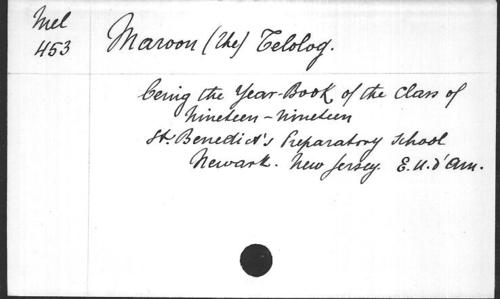 Mel
453
Maroon (The) Telolog.
being the Year-Book of the Class of
Nineteen-Nineteen
St. Benedict's Preparatory School
Newark. New Jersey. E.U.d'Am.